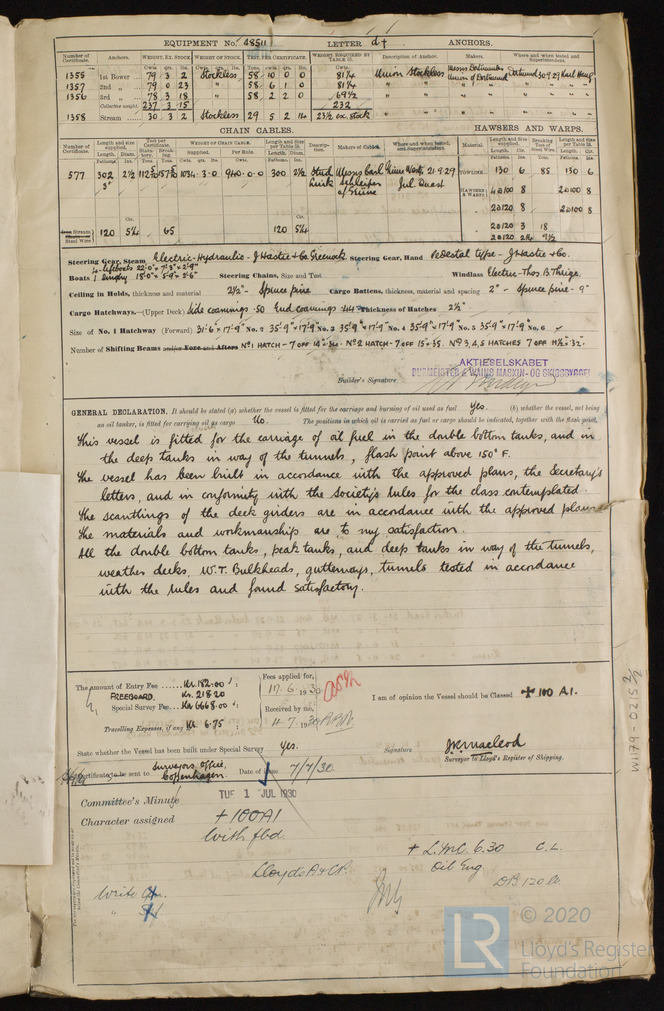 EQUIPMENT No. 48511 LETTER d† ANCHORS.
Number of Certificate. Anchors. WEIGHT, EX. STOCK. WEIGHT OF STOCK. TEST, PER CERTIFICATE. WEIGHT REQUIRED BY TABLE 31. Description of Anchor. Makers. Where and when tested and Superintendent.
1355 1st Bower 79 3 2 Stockless 58 10 0 0 81¼ Union Stockless
1357 2nd „ 79 0 23 " 58 6 1 0 81¼ " "
1356 3rd „ 78 3 18 " 58 2 2 0 69½ " "
Collective weight. 237 3 15 232
1358 Stream 30 3 2 Stockless 29 5 2 14 23½ ex. stock " "
CHAIN CABLES. HAWSERS AND WARPS.
Number of Certificate. Length and size supplied. Test per Certificate. WEIGHT OF CHAIN CABLE. Length and size per Table 31. Description. Makers of Cables. Where and when tested, and Superintendent. Material. Length and size supplied. Breaking Test of Steel Wire. Length and size per Table 31.
577 302 2½ 1034.3.0 940.0.0 300 2½ Stud Link 21.9.29
TOWLINE 130 6 85 130 6
HAWSERS & WARPS 4@100 8 2@100 8
2@120 8 2@100 8
Stream Steel Wire 120 5¼ 65 120 5¼ 2@120 3 18
Steering Gear, Steam Electric-Hydraulic - J Hastie & Co Greenock Steering Gear, Hand Pedestal type - J Hastie & Co.
Boats 4 lifeboats 22'0" x 7'3" x 2'9" Steering Chains, Size and Test Windlass Electric - Thos. B. Thrige.
Ceiling in Holds, thickness and material 2½" - Spruce pine Cargo Battens, thickness, material and spacing 2" - Spruce pine - 9"
Cargo Hatchways.—(Upper Deck) Side coamings .50 End coamings .44 Thickness of Hatches 2½"
Size of No. 1 Hatchway (Forward) 31'6" x 17'9" No. 2 35'9" x 17'9" No. 3 35'9" x 17'9" No. 4 35'9" x 17'9" No. 5 35'9" x 17'9" No. 6
Number of Shifting Beams and/or Fore and Afters No 1 HATCH - 7 OFF No 2 HATCH - 7 OFF No 3, 4, 5 HATCHES 7 OFF
AKTIESELSKABET
BURMEISTER & WAINS MASKIN- OG SKIBSBYGGERI
Builder's Signature
GENERAL DECLARATION. It should be stated (a) whether the vessel is fitted for the carriage and burning of oil used as fuel Yes. (b) whether the vessel, not being
an oil tanker, is fitted for carrying oil as cargo No. The positions in which oil is carried as fuel or cargo should be indicated, together with the flash point.
This vessel is fitted for the carriage of oil fuel in the double bottom tanks, and in
the deep tanks in way of the tunnels, flash point above 150° F.
The vessel has been built in accordance with the approved plans, the Secretary's
letters, and in conformity with the Society's rules for the class contemplated.
The scantlings of the deck girders are in accordance with the approved plans
The materials and workmanship are to my satisfaction.
All the double bottom tanks, peak tanks, and deep tanks in way of the tunnels,
weather decks, W.T. Bulkheads, gutterways, tunnels tested in accordance
with the rules and found satisfactory.
The amount of Entry Fee Kr. 182.00
FREEBOARD Kr. 218.20
Special Survey Fee Kr. 6668.00
Travelling Expenses, if any Kr. 6.75
Fees applied for,
17.6.1930
Received by me,
4.7.1930
I am of opinion the Vessel should be Classed ✠ 100 A1.
State whether the Vessel has been built under Special Survey Yes.
Signature J.K. Macleod
Surveyor to Lloyd's Register of Shipping.
Certificate to be sent to Surveyors Office, Copenhagen. Date of issue 7/7/30.
Committee's Minute TUE 1 JUL 1930
Character assigned +100A1
With fbd.
Lloyds A & CP.
+ L.M.C. 6.30 C.L.
Oil Eng.
D.B. 120 lb.
Write
W1179-0215 2/2
LR
© 2020
Lloyd's Register
Foundation